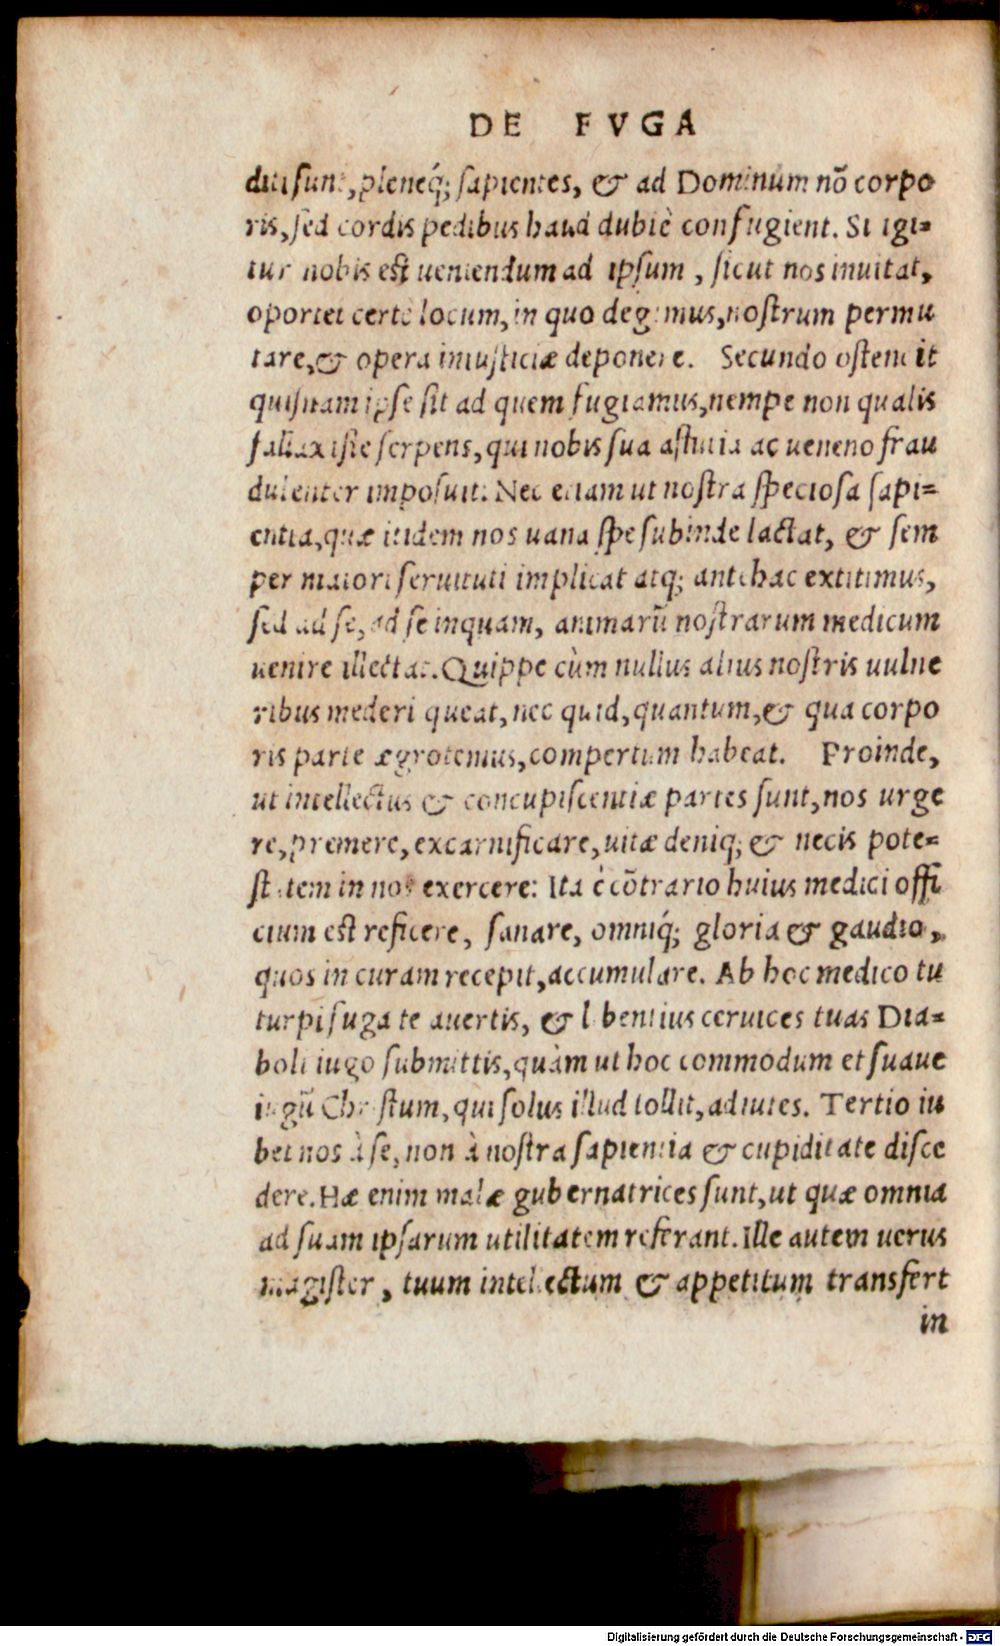 DE FVGA
diti sunt, pleneq́; sapientes, & ad Dominum nõ corpo
ris, sed cordis pedibus haud dubiè confugient. Si igi=
tur nobis est ueniendum ad ipsum, sicut nos inuitat,
oportet certè locum, in quo degimus, nostrum permu
tare, & opera iniusticiæ deponere. Secundo ostendit
quisnam ipse sit ad quem fugiamus, nempe non qualis
fallax iste serpens, qui nobis sua astutia ac ueneno frau
dulenter imposuit. Nec etiam ut nostra speciosa sapi=
entia, quæ itidem nos uana spe subinde lactat, & sem
per maiori seruituti implicat atq; antehac extitimus,
sed ad se, ad se inquam, animarũ nostrarum medicum
uenire illectat. Quippe cùm nullus alius nostris uulne
ribus mederi queat, nec quid, quantum, & qua corpo
ris parte ægrotemus, compertum habeat. Proinde,
ut intellectus & concupiscentiæ partes sunt, nos urge
re, premere, excarnificare, uitæ deniq; & necis pote=
statem in nos exercere: Ita è cõtrario huius medici offi
cium est reficere, sanare, omniq́; gloria & gaudio,
quos in curam recepit, accumulare. Ab hoc medico tu
turpi fuga te auertis, & libentius ceruices tuas Dia=
boli iugo submittis, quàm ut hoc commodum et suaue
iugũ Christum, qui solus illud tollit, adiutes. Tertio iu
bet nos à se, non à nostra sapientia & cupiditate disce
dere. Hæ enim malæ gubernatrices sunt, ut quæ omnia
ad suam ipsarum utilitatem referant. Ille autem uerus
magister, tuum intellectum & appetitum transfert
in
Digitalisierung gefördert durch die Deutsche Forschungsgemeinschaft - DFG